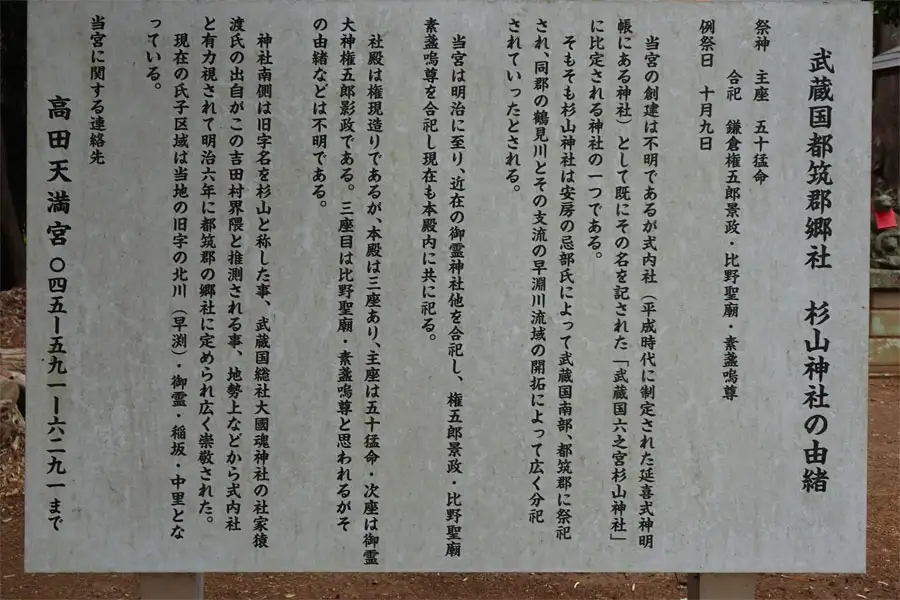 武蔵国都筑郡郷社　杉山神社の由緒
祭神　主座　五十猛命
合祀　鎌倉権五郎景政・比野聖廟・素盞嗚尊
例祭日　十月九日
当宮の創建は不明であるが式内社（平成時代に制定された延喜式神明
帳にある神社）として既にその名を記された「武蔵国六之宮杉山神社」
に比定される神社の一つである。
そもそも杉山神社は安房の忌部氏によって武蔵国南部、都筑郡に祭祀
され、同郡の鶴見川とその支流の早淵川流域の開拓によって広く分祀
されていったとされる。
当宮は明治に至り、近在の御霊神社他を合祀し、権五郎景政・比野聖廟
素盞嗚尊を合祀し現在も本殿内に共に祀る。
社殿は権現造りであるが、本殿は三座あり、主座は五十猛命・次座は御霊
大神権五郎影政である。三座目は比野聖廟・素盞嗚尊と思われるがそ
の由緒などは不明である。
神社南側は旧字名を杉山と称した事、武蔵国総社大國魂神社の社家猿
渡氏の出自がこの吉田村界隈と推測される事、地勢上などから式内社
と有力視されて明治六年に都筑郡の郷社に定められ広く崇敬された。
現在の氏子区域は当地の旧字の北川（早渕）・御霊・稲坂・中里とな
っている。
当宮に関する連絡先
高田天満宮　〇四五ー五九一ー六二九一まで